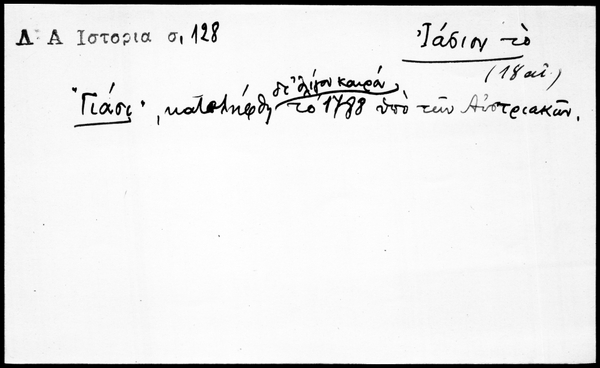 Δ Α Ιστορια σ, 128
Ἰάσιον τὸ
(18 αἰ.)
δι' ὀλίγον καιρόν
"Γιάσι", κατελήφθη τὸ 1788 ὑπὸ τῶν Αὐστριακῶν.